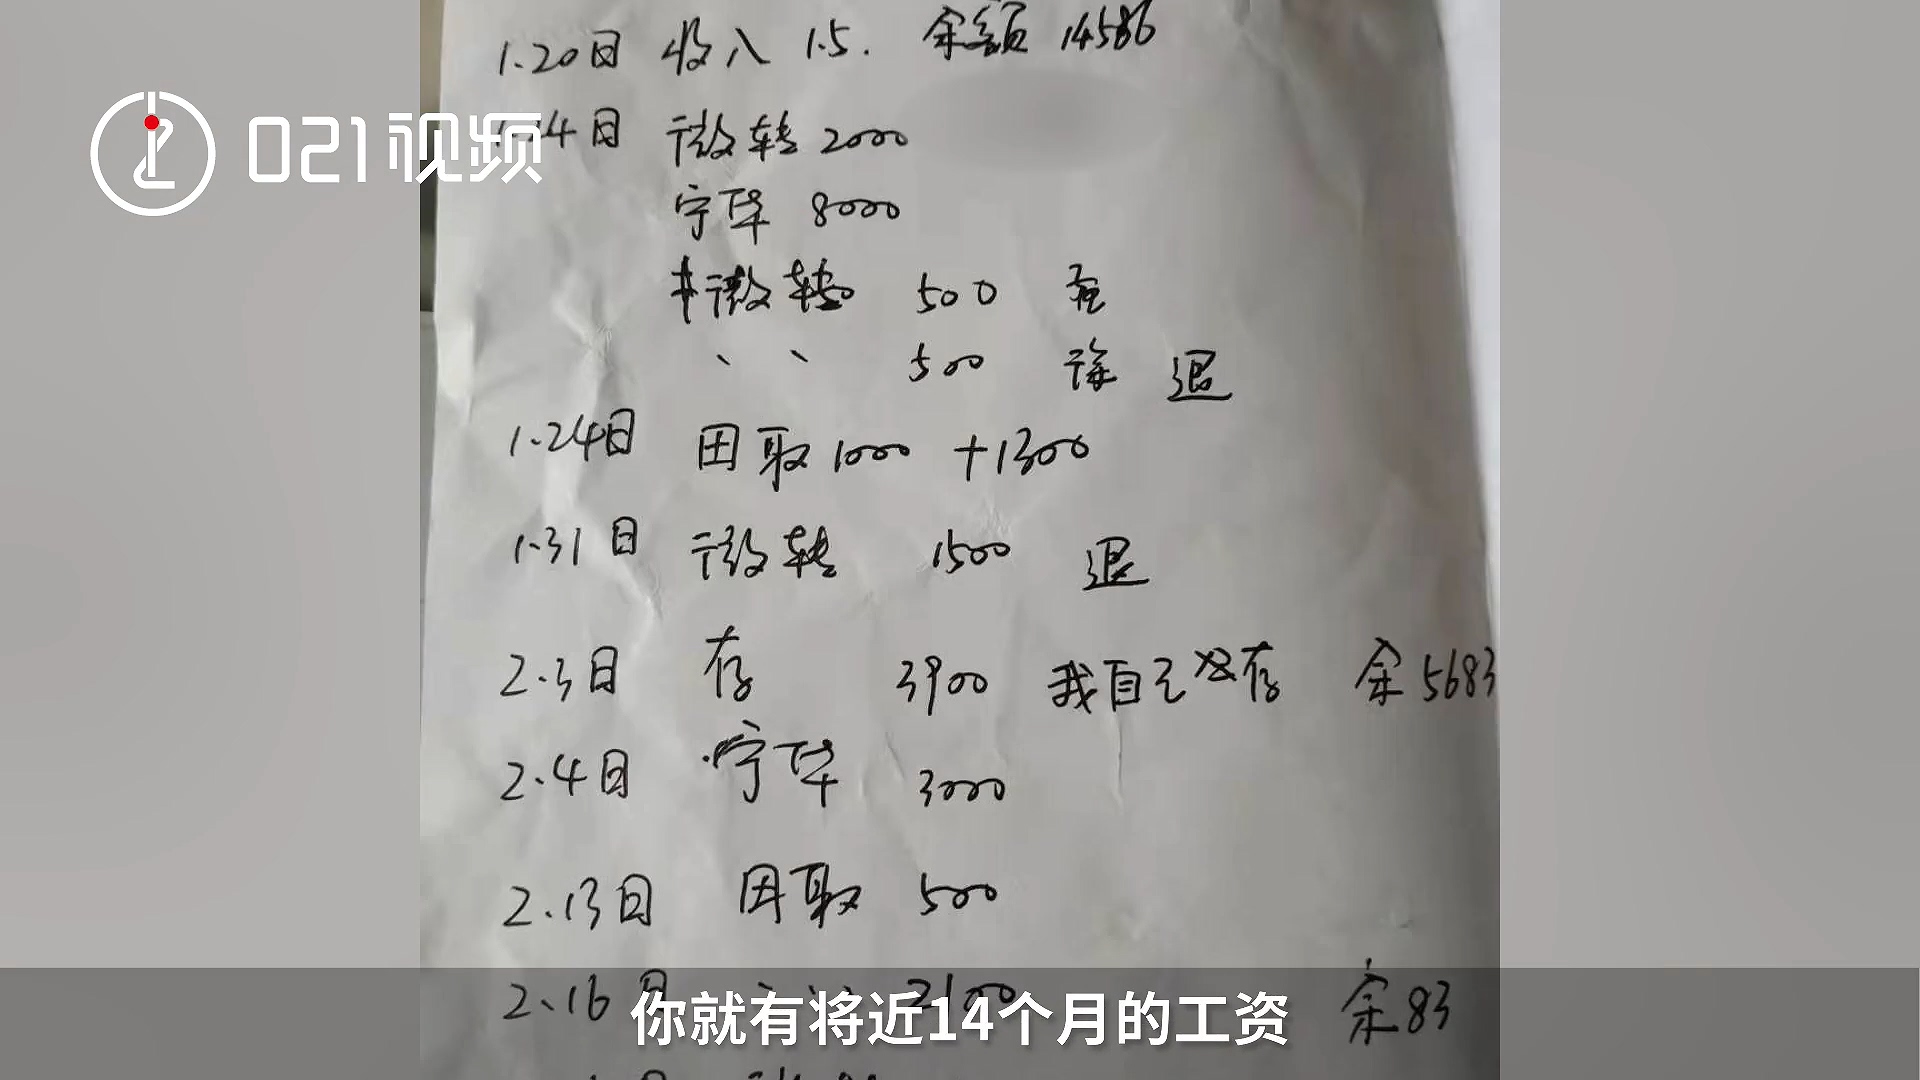 1.20日 收入 1.5. 余额 14586
021视频
14日 微转 2000
宁华 8000
微转 500
、 、 500 退
1.24日 因取 1000 +1300
1.31日 微转 1500 退
2.3日 存 3900 我自己存 余5683
2.4日 宁华 3000
2.13日 因取 500
2.16日 2100 余83
你就有将近14个月的工资